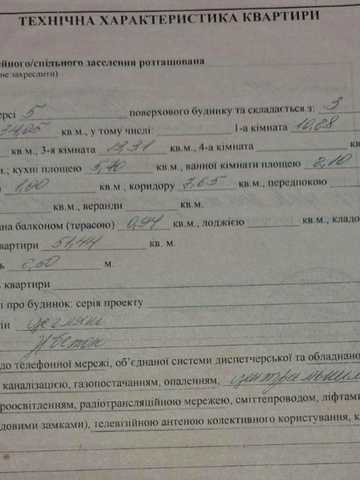 ТЕХНІЧНА ХАРАКТЕРИСТИКА КВАРТИРИ
ейного/спільного заселення розташована
не закреслити)
ерсі 5 поверхового будинку та складається з: 3
34,05 кв.м., у тому числі 1-а кімната 10,88
кв.м., 3-я кімната 13,31 кв.м., 4-а кімната кв
м., кухні площею 5,40 кв.м., ванної кімнати площею 2,10
1,00 кв.м., коридору 7,65 кв.м., передпокою
кв.м., веранди кв.м.
на балконом (терасою) 0,94 кв.м., лоджією кв.м., кладо
вартири 51,44 кв. м.
ь 2,50 м.
квартири
і про будинок: серія проекту
ін цегляні
до телефонної мережі, об'єднаної системи диспетчерської та обладнано
каналізацією, газопостачанням, опаленням,
роосвітленням, радіотрансляційною мережею, сміттєпроводом, ліфтами
довими замками), телевізійною антеною колективного користування, к